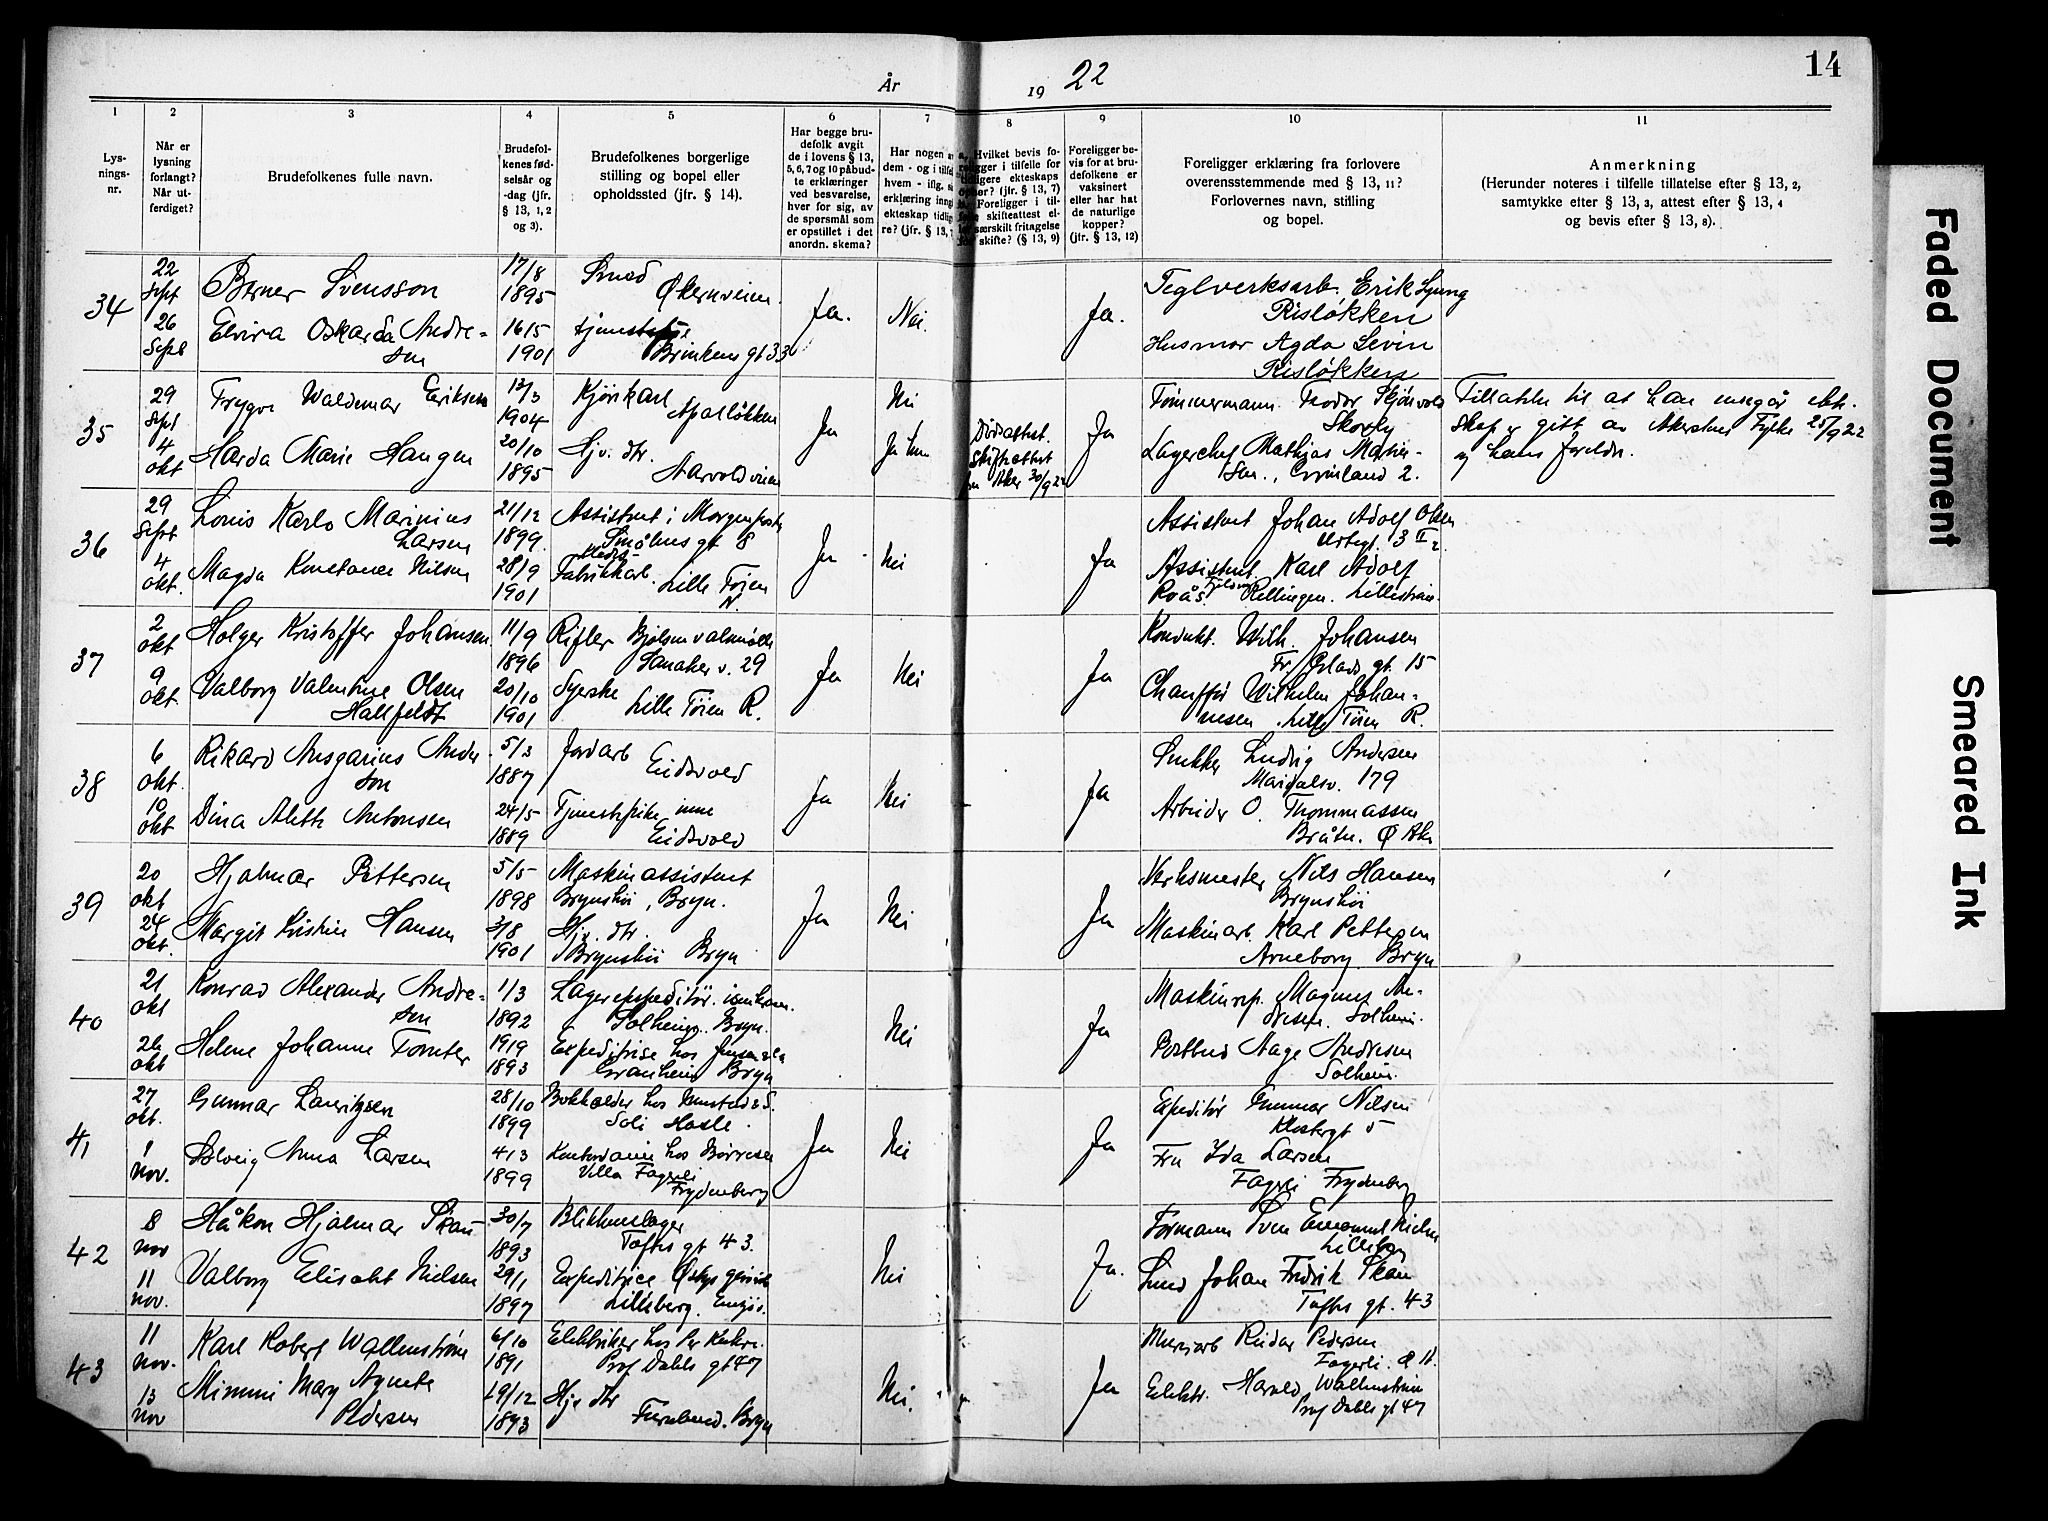 14
År 1922
1 2 3 4 5 6 7 8 9 10 11
Lys-
nings-
nr.
Når er
lysning
forlangt?
Når ut-
ferdiget?
Brudefolkenes fulle navn.
Brudefol-
kenes fød-
selsår og
-dag (jfr.
§ 13, 1, 2
og 3).
Brudefolkenes borgerlige
stilling og bopel eller
opholdssted (jfr. § 14).
Har begge bru-
defolk avgit
de i lovens § 13,
5, 6, 7 og 10 påbud-
te erklæringer
ved besvarelse,
hver for sig, av
de spørsmål som
er opstillet i det
anordn. skema?
Har nogen a
dem - og i tilfe
hvem - iflg. s
erklæring inng
ekteskap tidlig
re? (jfr. § 13,
Hvilket bevis fo-
religger i tilfelle for
tidligere ekteskaps
ophør? (jfr. § 13, 7)
Foreligger i til-
felle skifteattest el-
ler særskilt fritagelse
for skifte? (§ 13, 9)
Foreligger be-
vis for at bru-
defolkene er
vaksinert
eller har hat
de naturlige
kopper?
(jfr. § 13, 12)
Foreligger erklæring fra forlovere
overensstemmende med § 13, 11?
Forlovernes navn, stilling
og bopel.
Anmerkning
(Herunder noteres i tilfelle tillatelse efter § 13, 2,
samtykke efter § 13, 3, attest efter § 13, 4
og bevis efter § 13, 8).
34
22 Sept
26 Sept
Berner Svensson
Elvira Oskarda Andre-
sen
17/8 1895
16/5 1901
Smed
Økernveien
tjenestepi
Brinkens gt 33
Ja. Nei. Ja.
Teglverksarb. Erik Ljung
Risløkken
Husmor Agda Levin
Risløkken
35
29 Sept
4 okt
Trygve Waldemar Eriksen
Harda Marie Haugen
13/3 1904
20/10 1895
Kjørekarl
Apalløkken
Hjv. dtr.
Aarvoldveien
Ja
Nei
Ja hun
Dødsattest.
Skifteattest
fra Aker 30/9 22
Ja
Tømmermann Teodor Skjønvold
Skovly
Lagerchef Mathias Martin-
sen, Grønland 2.
Tillatelse til at han inngår ekte-
skap er gitt av Akershus Fylke 25/9 22
og hans foreldre.
36
29 Sept
4 okt.
Louis Karlo Marinius
Larsen
Magda Konstance Nilsen
21/12 1899
28/9 1901
Assistent i Morgenposten
Smålens gt 8
Fabrikkarb. Lille Tøien
N.
Ja Nei Ja
Assistent Johan Adolf Olsen
Urtegt. 3 II
Assistent Karl Adolf
Roås. Rellingen. Lillestrøm.
37
2 okt
9 okt.
Holger Kristoffer Johansen
Valborg Valentine Olsen
Hallfeldt
11/9 1896
20/10 1901
Rifler Bjølsen valsemølle
Sanaker v. 29
Syerske
Lille Tøien R.
Ja Nei Ja
Kondukt. Wilh. Johansen
Fr. Glads gt. 15
Chauffør Wilhelm Johan-
nesen, Lille Tøien R.
38
6 okt.
10 okt
Rikard Ansgarius Ander
sen
Dina Alette Antonsen
5/3 1887
24/5 1889
Jordarb
Eidsvold
Tjenestepike inne
Eidsvold
Ja Nei Ja
Snekker Ludvig Andersen
Maridalsv. 179
Arbeider O. Thommassen
Bråtn. Ø Aker
39
20 okt
24 okt.
Hjalmar Pettersen
Margit Kristine Hansen
5/5 1898
3/8 1901
Maskinassistent
Brynshøi, Bryn.
Hjv. dtr.
Brynshøi Bryn
Ja Nei Ja
Verksmester Nils Hansen
Brynshøi
Maskinarb. Karl Pettersen
Arneborg Bryn
40
21 okt
26 okt
Konrad Alexander Andre-
sen
Helene Johanne Tomter
1/3 1892
19/9 1893
Lagerekspeditør i
Solheim. Bryn.
Expeditrise hos Jensen
Granheim Bryn
Nei Ja
Maskinrep. Magnus An-
dresen. Solheim.
Postbud Aage Andresen
Solheim.
41
27 okt.
1 nov.
Gunnar Lauritzen
Solveig Anna Larsen
28/10 1899
4/3 1899
Bokholder hos
Soli Hasle.
Kontordame hos Børresen
Villa Fagerli
Frydenberg
Ja Nei Ja
Expeditør Gunnar Nilsen
Klostergt 5
Fru Ida Larsen
Fagerli Frydenberg
42
8 nov
11 nov.
Håkon Hjalmar Skau
Valborg Elisabet Nielsen
30/7 1893
29/1 1897
Blikkenslager
Toftes gt 43.
Expeditrice
Lilleberg. Ensjø.
Nei Ja.
Formann Sven Emanuel Nielsen
Lilleberg
Smed Johan Fredrik Skau
Toftes gt. 43
43
11 nov.
13 nov
Karl Robert Wallenstrøm
Mimmi Mary Agnete
Pedersen
6/10 1891
29/12 1893
Elektriker hos Per Kure.
Prof Dahls gt 47
Hjv dtr
Furulund. Bryn
Nei. Ja
Murarb Reidar Pedersen
Fagerli.
Elektr. Harald Wallenstrøm
Prof Dahls gt 47
Faded Document
Smeared Ink